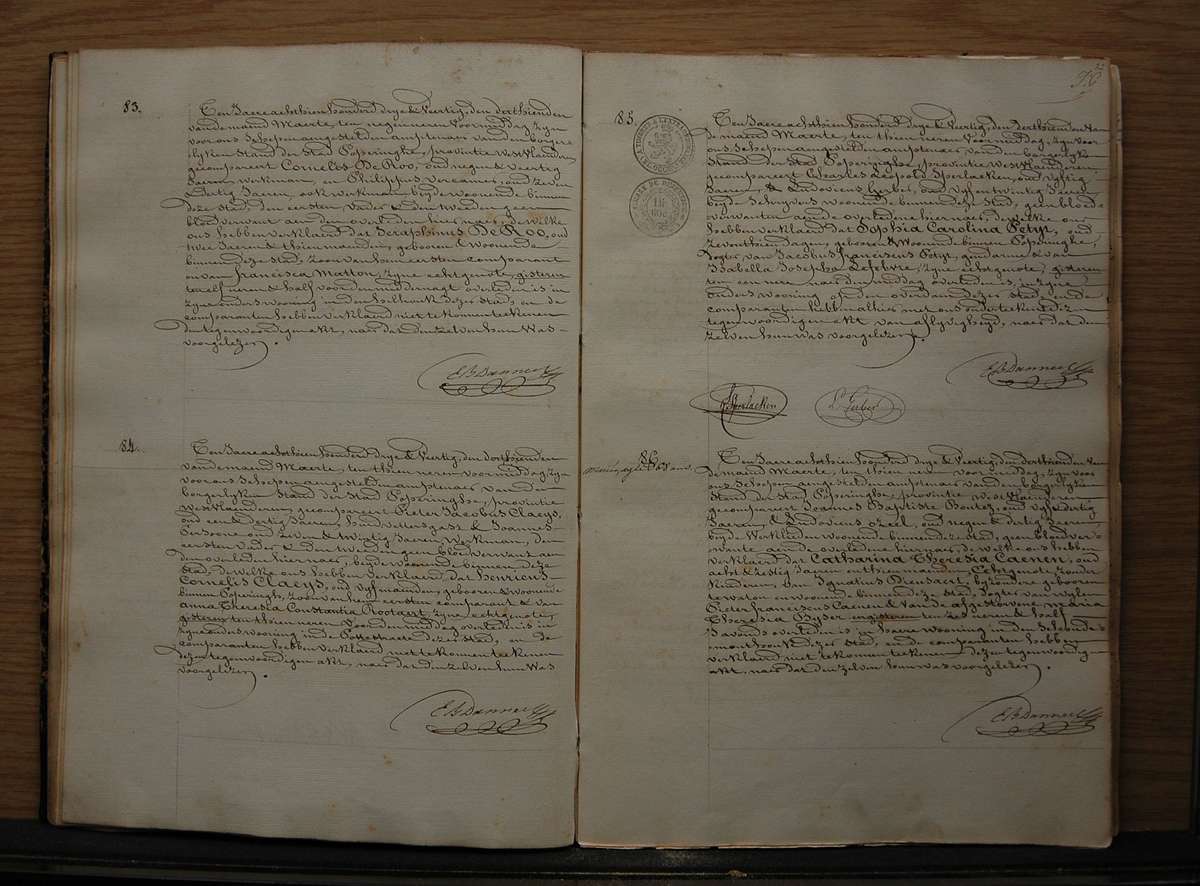 83.
Ten Jaere achthien honderd drye & Veertig, den derthienden
van de maend Maerte, ten negen uren Voormiddag, zyn
voor ons Schepen aengestelden amptenaer van den borger-
lyken Stand der Stad Poperinghe, provintie Westvlaenderen
gecompareert Cornelis De Roo, oud negen & veertig
Jaeren, werkman, en Philippus Vercamer, oud zeven
dertig Jaeren, ook werkman beyde woonende binnen
deze Stad, den eersten Vader & den tweeden geenen
bloedverwant aen den overleden hier naer, de welke
ons hebben verklaerd dat Seraphinus De Roo, oud
twee Jaeren & thien maenden, gebooren & Woonende
binnen deze Stad, zoon van hun eersten comparant
en van Francisca Matton, zyne echtgenote, gisteren
ten elf uren & half voor den middernagt overleden is in
zyne ouders wooning in den hilhoek dezer Stad, en de
comparanten hebben verklaerd niet te konnen teekenen
den tegenwoordigen akt, naer dat den zelven hun Was
voorgelezen.
84.
Ten Jaere achthien honderd drye & Veertig, den derthienden
van de maend Maerte, ten thien uren voormiddag, zyn
voor ons Schepen aengestelden amptenaer van den
borgerlyken Stand der Stad Poperinghe, provintie
Westvlaenderen, gecompareert Pieter Jacobus Claeys,
oud een & dertig Jaeren, houdvettersgast & Joannes
Persoone oud zeven & twintig Jaeren Werkman, den
eersten Vader & den tweeden geen bloedverwant aen
den overleden hier naer, beyde woonende binnen deze
Stad, de welke ons hebben Verklaerd dat Henricus
Cornelis Claeys, oud vyf maenden, gebooren & woonende
binnen Poperinghe, zoon van hun eersten comparant & van
Anna Theresia Constantia Rootaert, zyne echtgenote,
gisteren ten thien uren Voor den middag overleden is in
zyne ouders wooning in de Pottestraete dezer Stad, en de
comparanten hebben verklaerd niet te konnen teekenen
dezen tegenwoordigen akt, naer dat den zelven hun Was
voorgelezen.
85.
Ten Jaere achthien honderd drye & Veertig, den derthienden Van
de maend Maerte, ten thien uren Voormiddag, zyn voor
ons Schepen aengestelden amptenaer van den borgerlyken
Stand der Stad Poperinghe, provintie Westvlaenderen
gecompareert Charles Leopold Sporlacken, oud vyftig
Jaeren, & Ludovicus Gerbei, oud vyf en twintig Jaeren
beyde Schryvers woonende binnen deze Stad, geen bloed-
verwanten aen de overledene hier naer, de welke ons
hebben verklaerd dat Sophia Carolina Petyt, oud
zeventhien dagen, gebooren & Woonende binnen Poperinghe,
dogter van Jacobus Franciscus Petyt, gendarme & van
Isabella Josepha Lefebvre, zyne echtgenote, gisteren
ten een ure naer den middag overleden is, in zyne
ouders wooning op den overdam dezer Stad, en de
comparanten hebben alhier met ons onderteekend dezen
tegenwoordigen akt van aflyvigheyd, naer dat den
zelven hun was voorgelezen.
86.
Ten Jaere achthien honderd drye & Veertig, den derthienden Van
de maend Maerte, ten thien uren Voormiddag, zyn voor
ons Schepen aengestelden amptenaer van den borgerlyken
Stand der Stad Poperinghe, provintie Westvlaenderen
gecompareert Joannes Baptiste Bontez, oud vyf & dertig
Jaeren, & Ludovicus Ozeel, oud negen & dertig Jaeren
beyde Werklieden woonende binnen deze Stad, geen bloedver-
wante aen de overledene hier naer, de welke ons hebben
verklaerd dat Catharina Theresia Caenen, oud
acht & zestig Jaeren & thien maenden, Echtgenote zonder
kinderen, van Ignatius Prensaert, byzondere gebooren
te Watou en woonende binnen deze Stad, dogter van wylen
Pieter Franciscus Caenen & van de afgestorvene Maria
Theresia Pyser eergisteren ten zes uren & half
s'avonds overleden is, in haere wooning in den Schoonder-
monthoek dezer Stad, en de comparanten hebben
verklaerd niet te konnen teekenen dezen tegenwoordigen
akt, naer dat den zelven hun was voorgelezen.